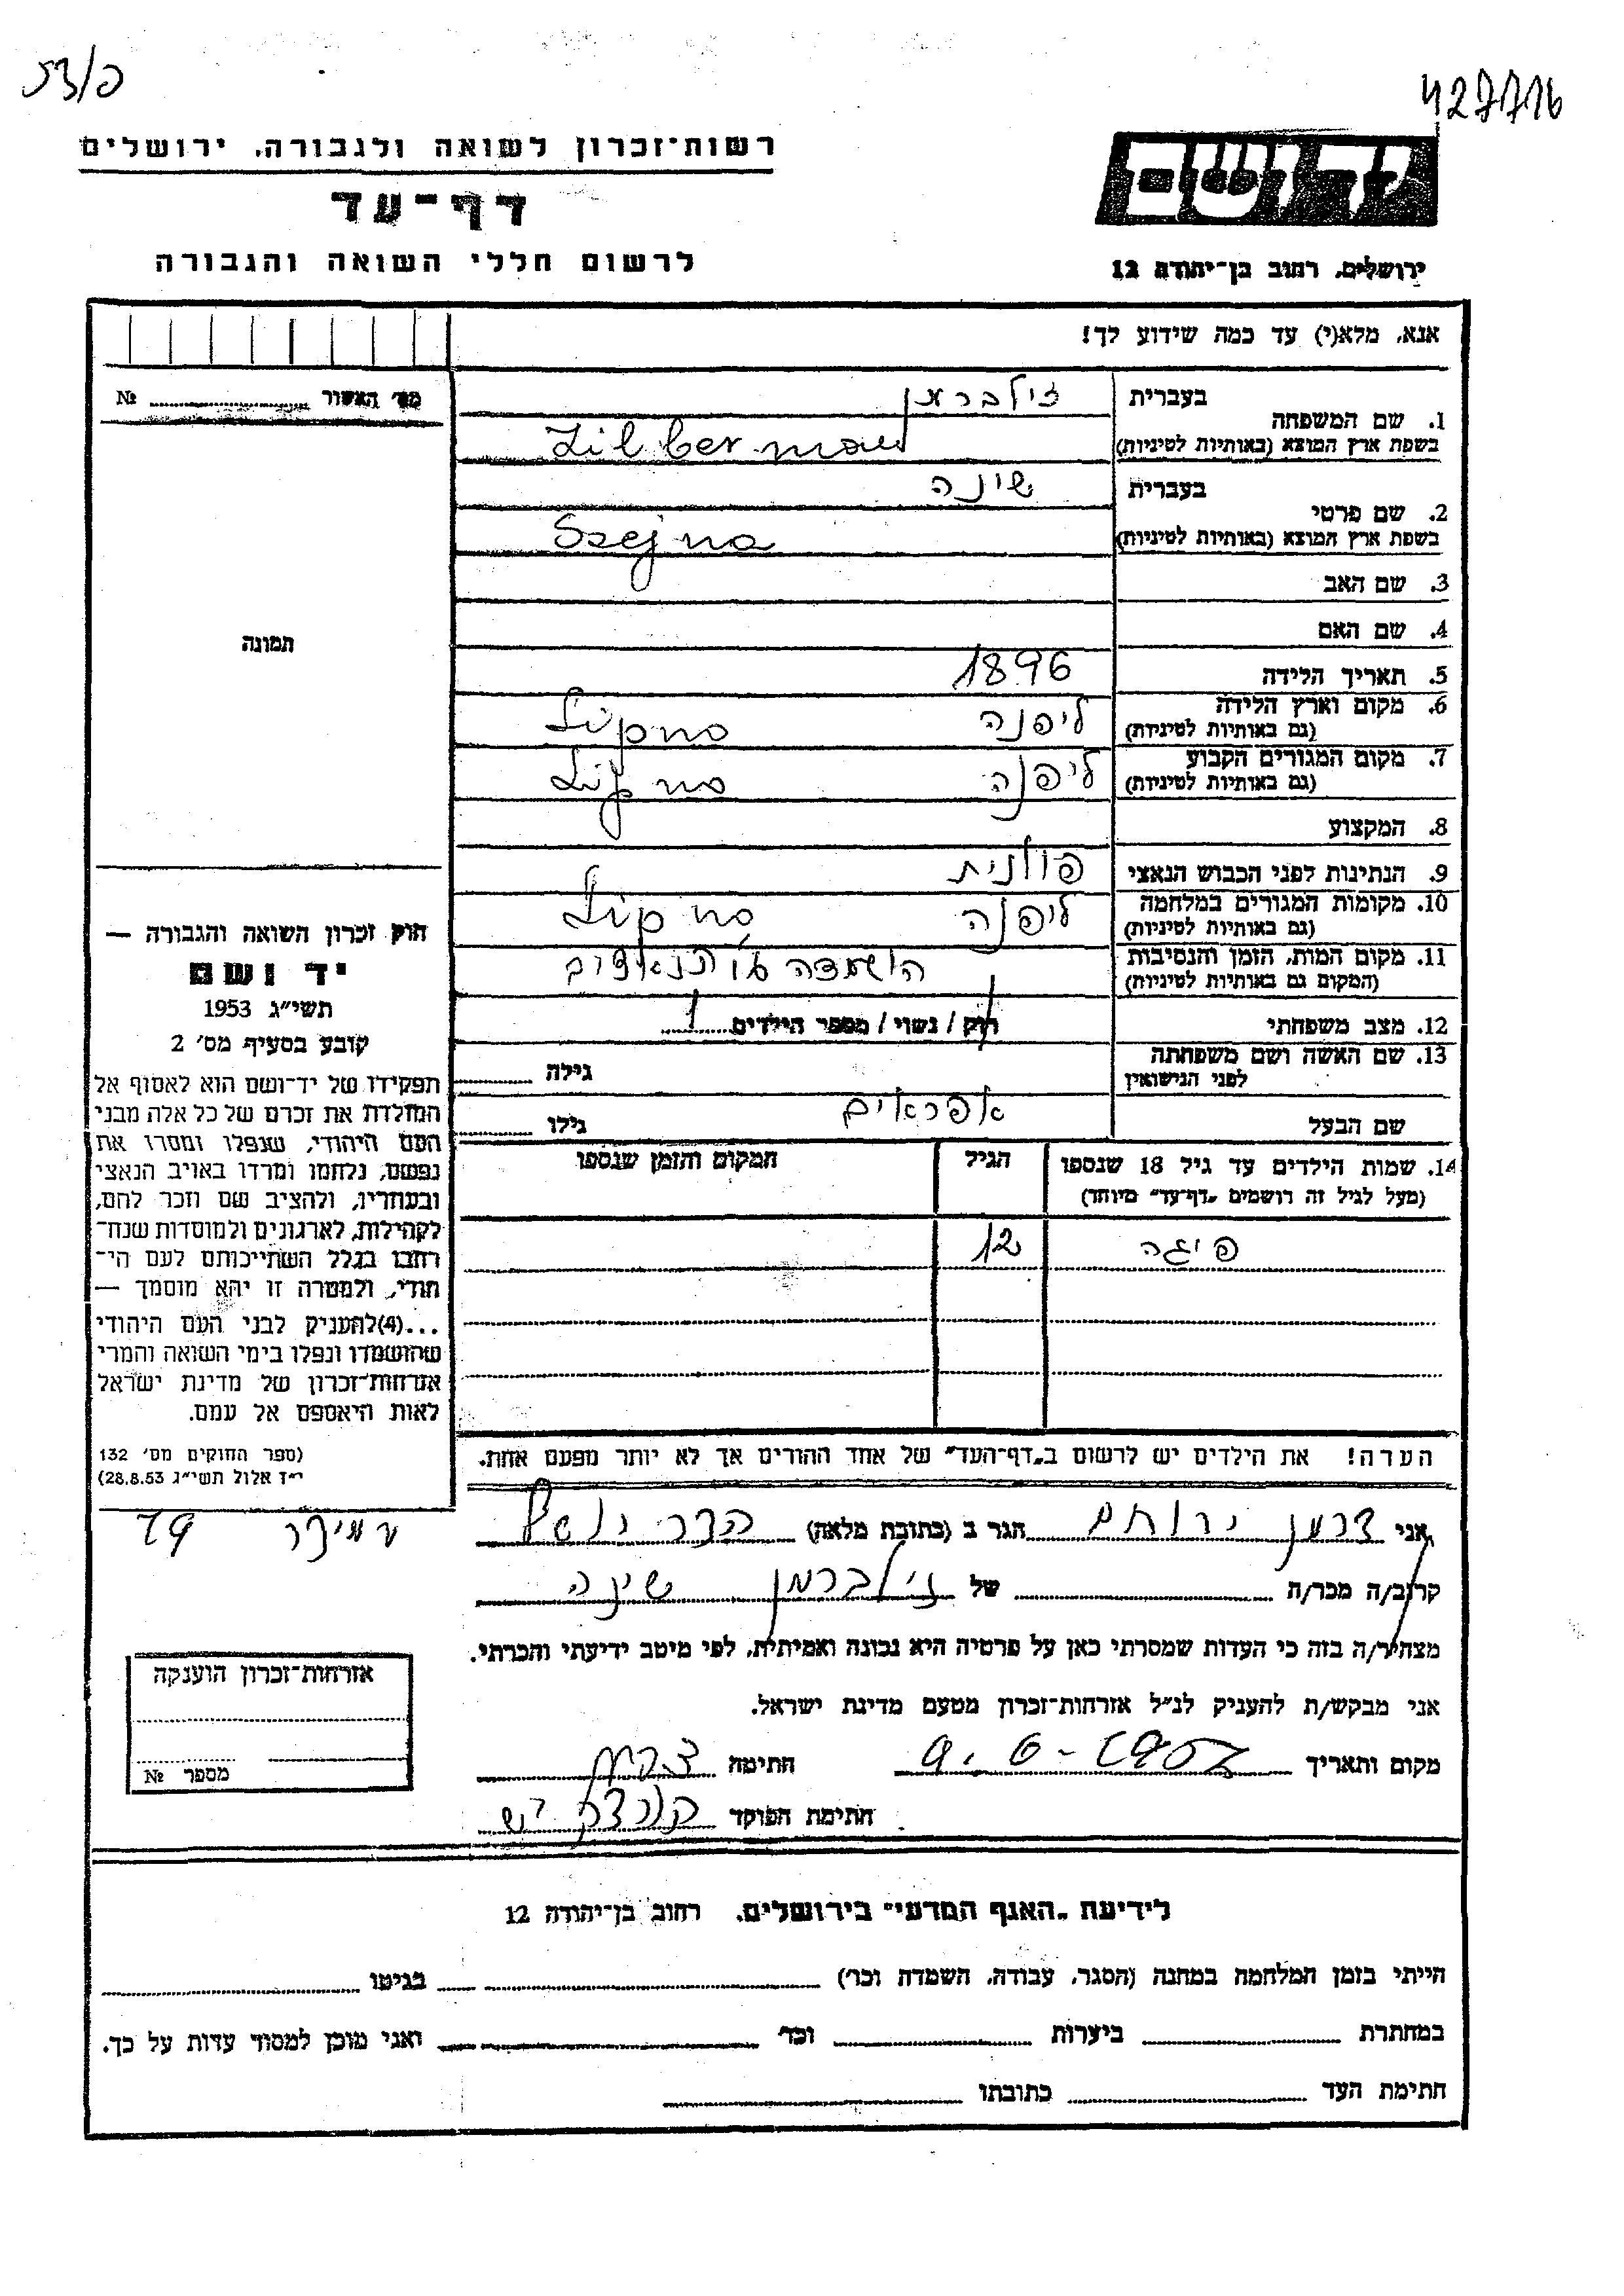 פ/53
427716
רשות־זכרון לשואה ולגבורה, ירושלים
דף־עד
לרשום חללי השואה והגבורה
יד ושם
ירושלים, רחוב בן־יהודה 12
אנא, מלא(י) עד כמה שידוע לך!
מס׳ האשור № ....................
תמונה
1. שם המשפחה
בעברית זילברמן
בשפת ארץ המוצא (באותיות לטיניות) Zilberman
2. שם פרטי
בעברית שינה
בשפת ארץ המוצא (באותיות לטיניות) Szejna
3. שם האב
4. שם האם
5. תאריך הלידה 1896
6. מקום וארץ הלידה ליפנה Lipno
(גם באותיות לטיניות)
7. מקום המגורים הקבוע ליפנה Lipno
(גם באותיות לטיניות)
8. המקצוע
9. הנתינות לפני הכבוש הנאצי פולנית
10. מקומות המגורים במלחמה ליפנה Lipno
(גם באותיות לטיניות)
11. מקום המות, הזמן והנסיבות הושמדה ע״י הנאצים
(המקום גם באותיות לטיניות)
12. מצב משפחתי רוק / נשוי / מספר הילדים 1
13. שם האשה ושם משפחתה
לפני הנישואין גילה
שם הבעל אפראים גילו
14. שמות הילדים עד גיל 18 שנספו הגיל המקום והזמן שנספו
(מעל לגיל זה רושמים „דף־עד״ מיוחד)
פיגה 12
הערה! את הילדים יש לרשום ב„דף־העד״ של אחד ההורים אך לא יותר מפעם אחת.
חוק זכרון השואה והגבורה —
יד ושם
תשי״ג 1953
קובע בסעיף מס׳ 2
תפקידו של יד־ושם הוא לאסוף אל
המולדת את זכרם של כל אלה מבני
העם היהודי, שנפלו ומסרו את
נפשם, נלחמו ומרדו באויב הנאצי
ובעוזריו, ולהציב שם וזכר להם,
לקהילות, לארגונים ולמוסדות שנח־
רחבו בגלל השתייכותם לעם הי־
הודי, ולמטרה זו יהא מוסמך —
...(4)להעניק לבני העם היהודי
שהושמדו ונפלו בימי השואה והמרי
אזרחות־זכרון של מדינת ישראל
לאות היאספם אל עמם.
(ספר החוקים מס׳ 132
י״ד אלול תשי״ג 28.8.53)
אני ירוחם הגר ב (כתובת מלאה) הדר יוסף
עמידר 79
קרוב/ה מכר/ה של זילברמן שינה
מצהיר/ה בזה כי העדות שמסרתי כאן על פרטיה היא נכונה ואמיתית, לפי מיטב ידיעתי והכרתי.
אני מבקש/ת להעניק לנ״ל אזרחות־זכרון מטעם מדינת ישראל.
מקום ותאריך 9.6-1957 חתימה
חתימת הפוקד
אזרחות־זכרון הוענקה
מספר №
לידיעת „האגף המדעי״ בירושלים, רחוב בן־יהודה 12
הייתי בזמן המלחמה במחנה (הסגר, עבודה, השמדה וכר׳) בגיטו
במחתרת ביערות וכר׳ ואני מוכן למסור עדות על כך.
חתימת העד כתובתו